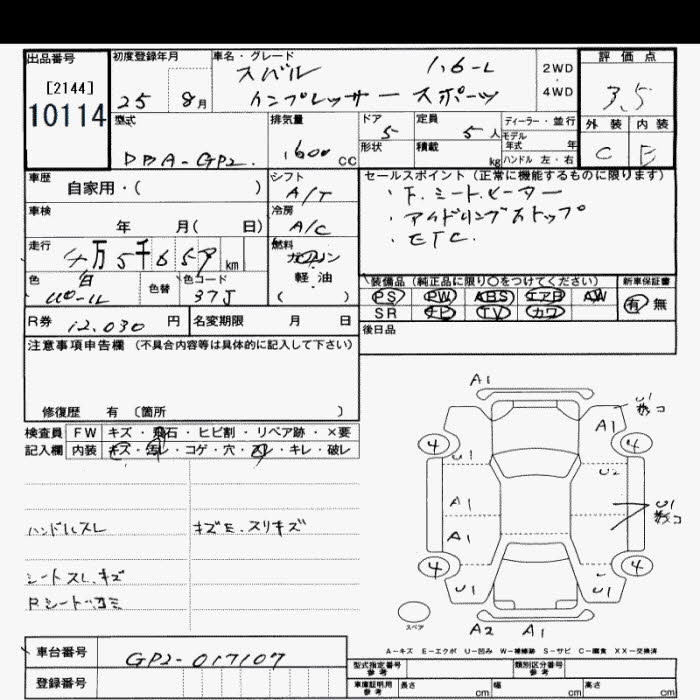 出品番号
[2144]
10114
初度登録年月
25 8月
車名・グレード
スバル 1.6-L
インプレッサー スポーツ
2WD
4WD
評価点
3.5
外装 内装
C E
型式
DBA-GP2.
排気量
1600 CC
ドア
5
定員
5人
形状
積載
kg
ディーラー・並行
モデル
年式 年
ハンドル 左・右
車歴
自家用・( )
シフト
A/T
セールスポイント (正常に機能するものに限ります)
・F.シートヒーター
・アイドリングストップ
・ETC.
車検
年 月( 日)
冷房
A/C
走行
4万5千659km
燃料
ガソリン
軽・油
( )
色
白
色替
色コード
37J
装備品 (純正品に限り○をつけてください)
新車保証書
PS PW ABS エアB AW
有 無
SR ナビ TV カワ
R券 12,030 円
名変期限 月 日
後日品
注意事項申告欄 (不具合内容等は具体的に記入して下さい)
修復歴 有 (箇所 )
検査員 FW キズ・飛石・ヒビ割・リペア跡・×要
記入欄 内装 キズ・汚レ・コゲ・穴・スレ・キレ・破レ
ハンドルスレ
キズE.スリキズ
シートスレ.キズ
Rシート.ゴミ
A1
U1
数コ
A1
4 4
U1 U2
A1
U1
数コ
A1
4 4
U1 U1
スペア
A2 A1
A-キズ E-エクボ U-凹み W-補修跡 S-サビ C-腐食 XX-交換済
車台番号 GP2-017107
登録番号
型式指定番号
参考
類別区分番号
参考
車庫証明用
参考
長さ cm 幅 cm 高さ cm